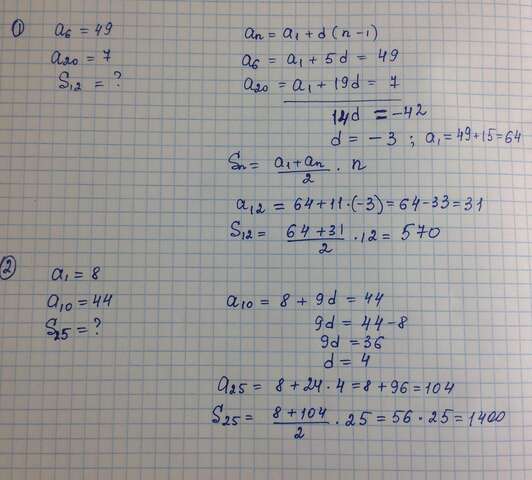 ① a₆ = 49
a₂₀ = 7
S₁₂ = ?
aₙ = a₁ + d (n - 1)
a₆ = a₁ + 5d = 49
a₂₀ = a₁ + 19d = 7
14d = -42
d = -3 ; a₁ = 49 + 15 = 64
Sₙ = (a₁ + aₙ)/2 · n
a₁₂ = 64 + 11 · (-3) = 64 - 33 = 31
S₁₂ = (64 + 31)/2 · 12 = 570
② a₁ = 8
a₁₀ = 44
S₂₅ = ?
a₁₀ = 8 + 9d = 44
9d = 44 - 8
9d = 36
d = 4
a₂₅ = 8 + 24 · 4 = 8 + 96 = 104
S₂₅ = (8 + 104)/2 · 25 = 56 · 25 = 1400